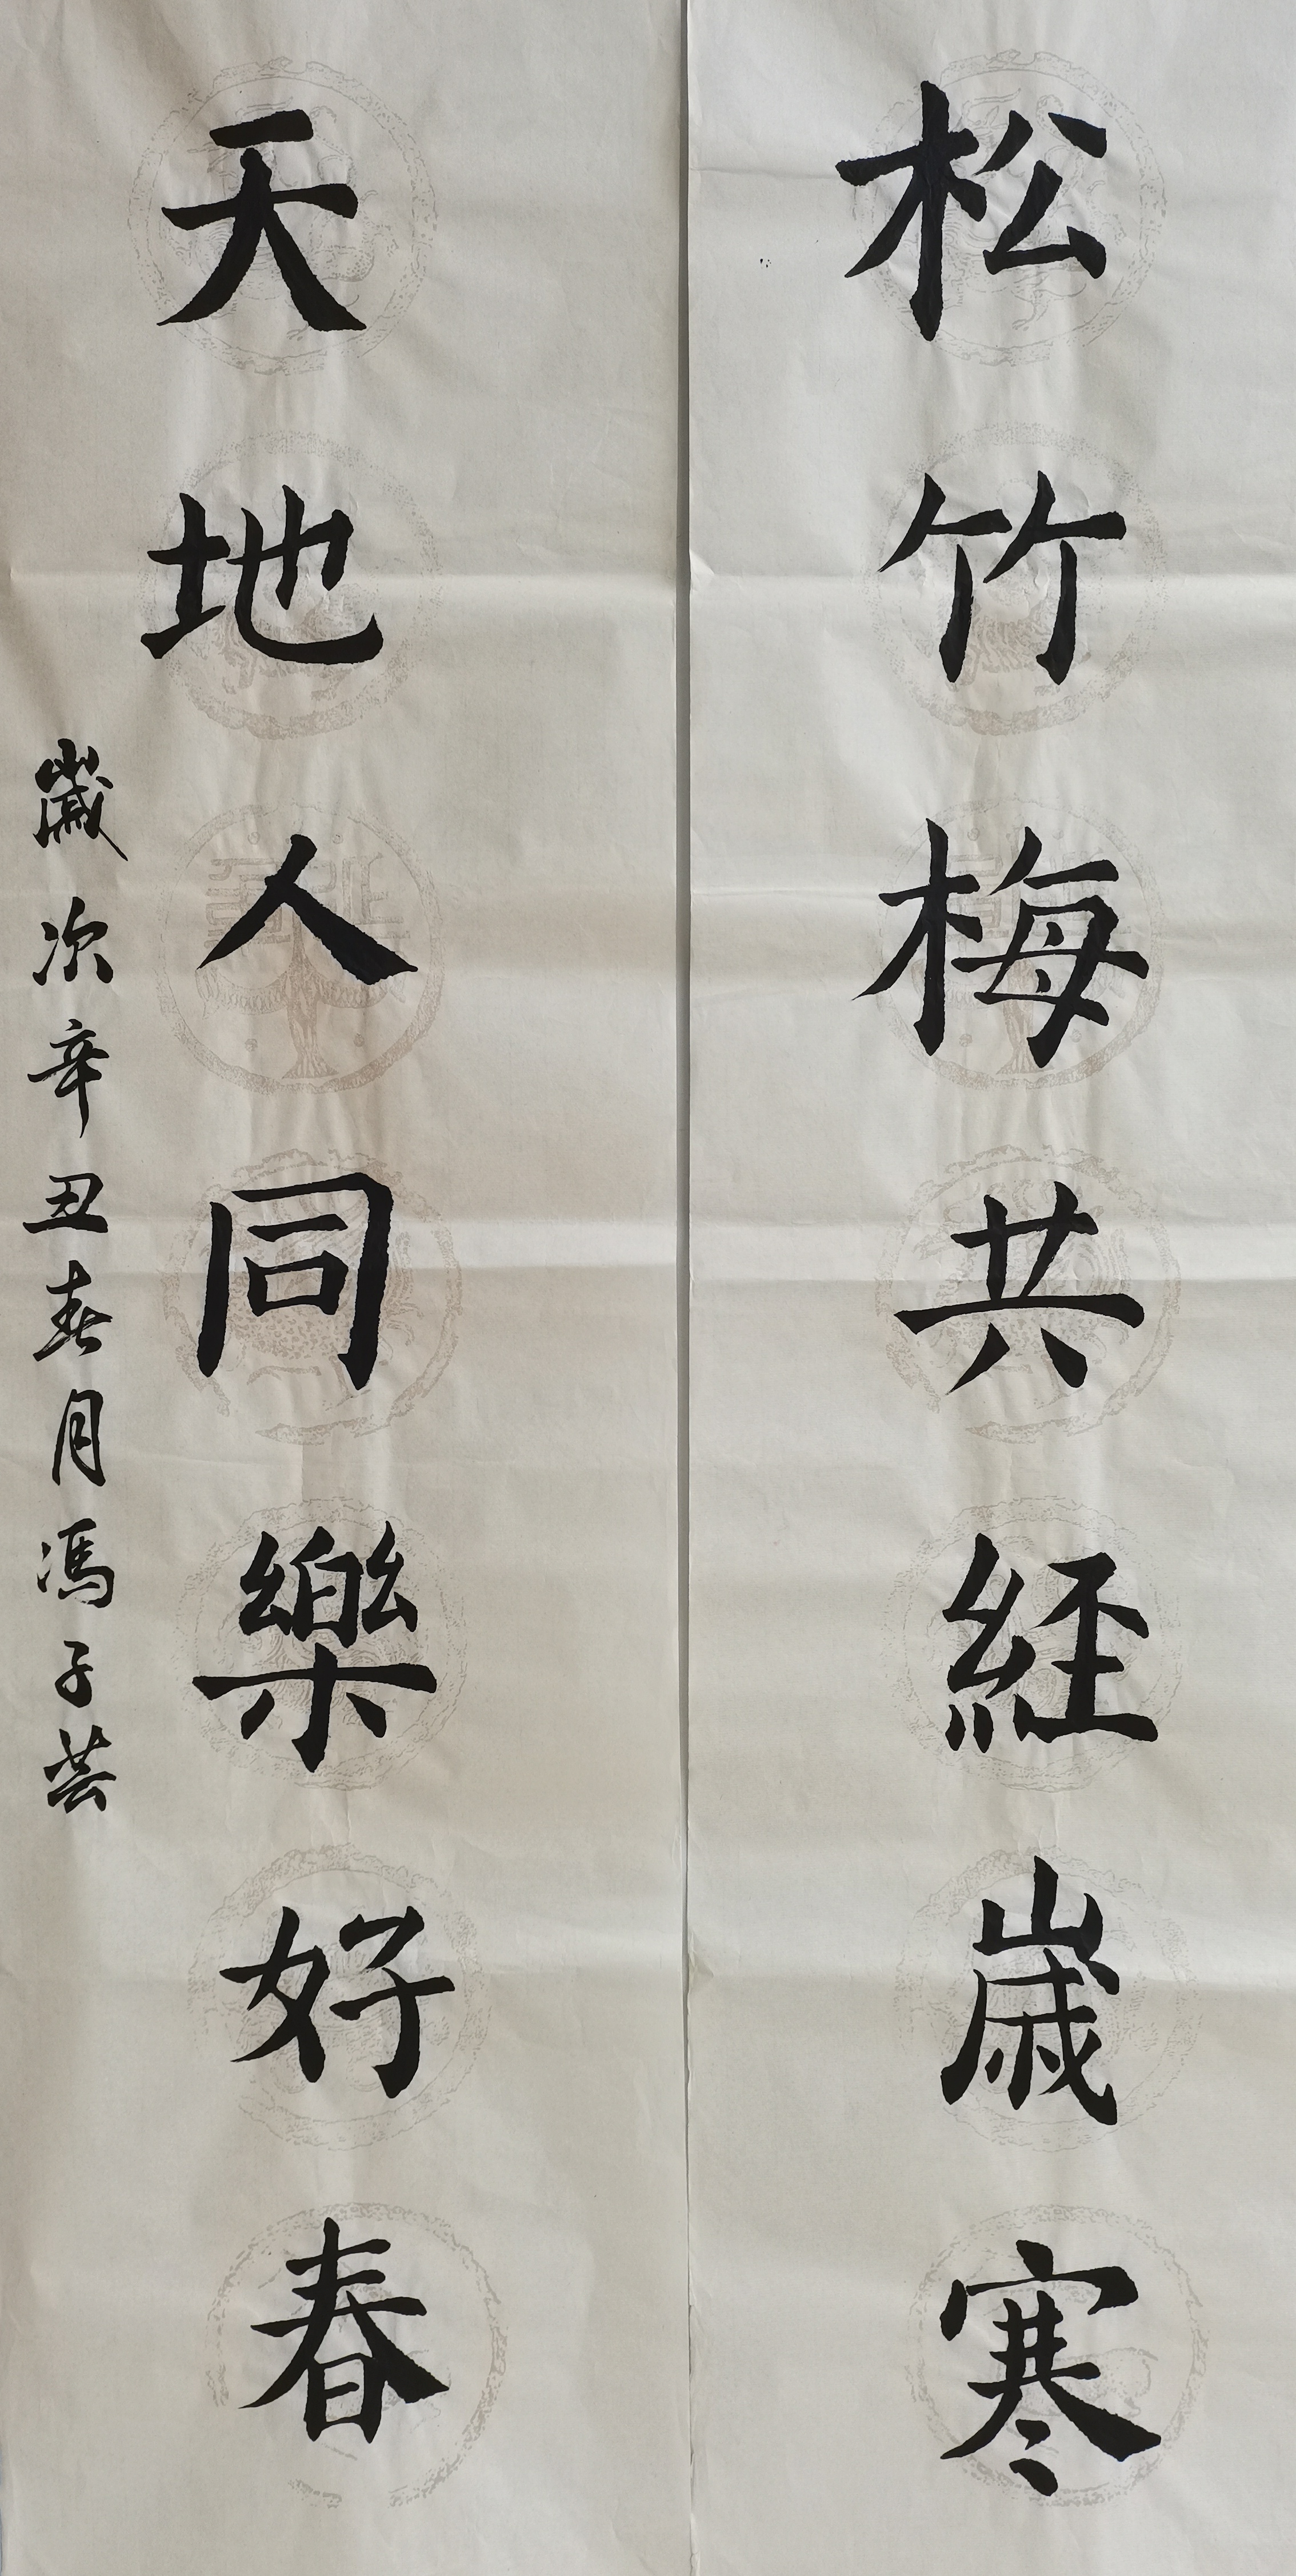 松竹梅共経歳寒
天地人同樂好春
歲次辛丑春月馮子芸